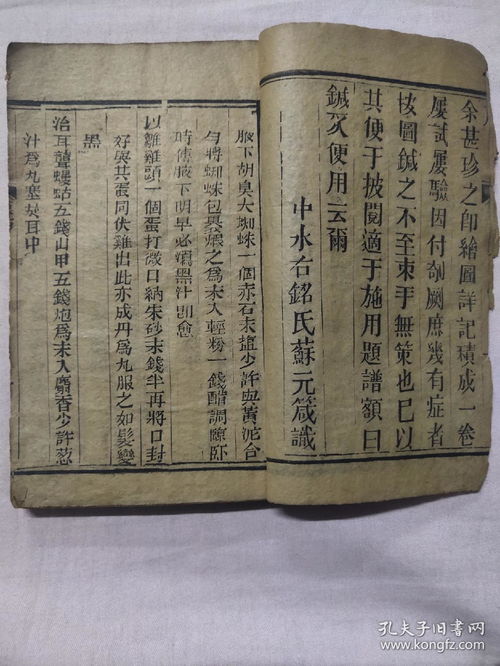 余甚珍之即繪圖詳記積成一卷
屢試屢驗因付剞劂庶幾有症者
按圖鍼之不至束手無策也已以
其便于披閱適于施用題譜額曰
鍼灸便用云爾
中水右銘氏蘇元箴識
腋下胡臭大蜘蛛一個赤石末塩少許些黃泥合
勻將蜘蛛包裹煨之為末入輕粉一錢醋調臨卧
時傅腋下明早必瀉黑汁即愈
以雞頭一個蛋打微口納朱砂末錢半再將口封
好與其蛋同伏雞出此亦成丹為丸服之如髮變
黑
治耳聾螻蛄五錢山甲五錢炮為末入麝香少許葱
汁為丸塞其耳中
孔夫子旧书网
www.kongfz.com